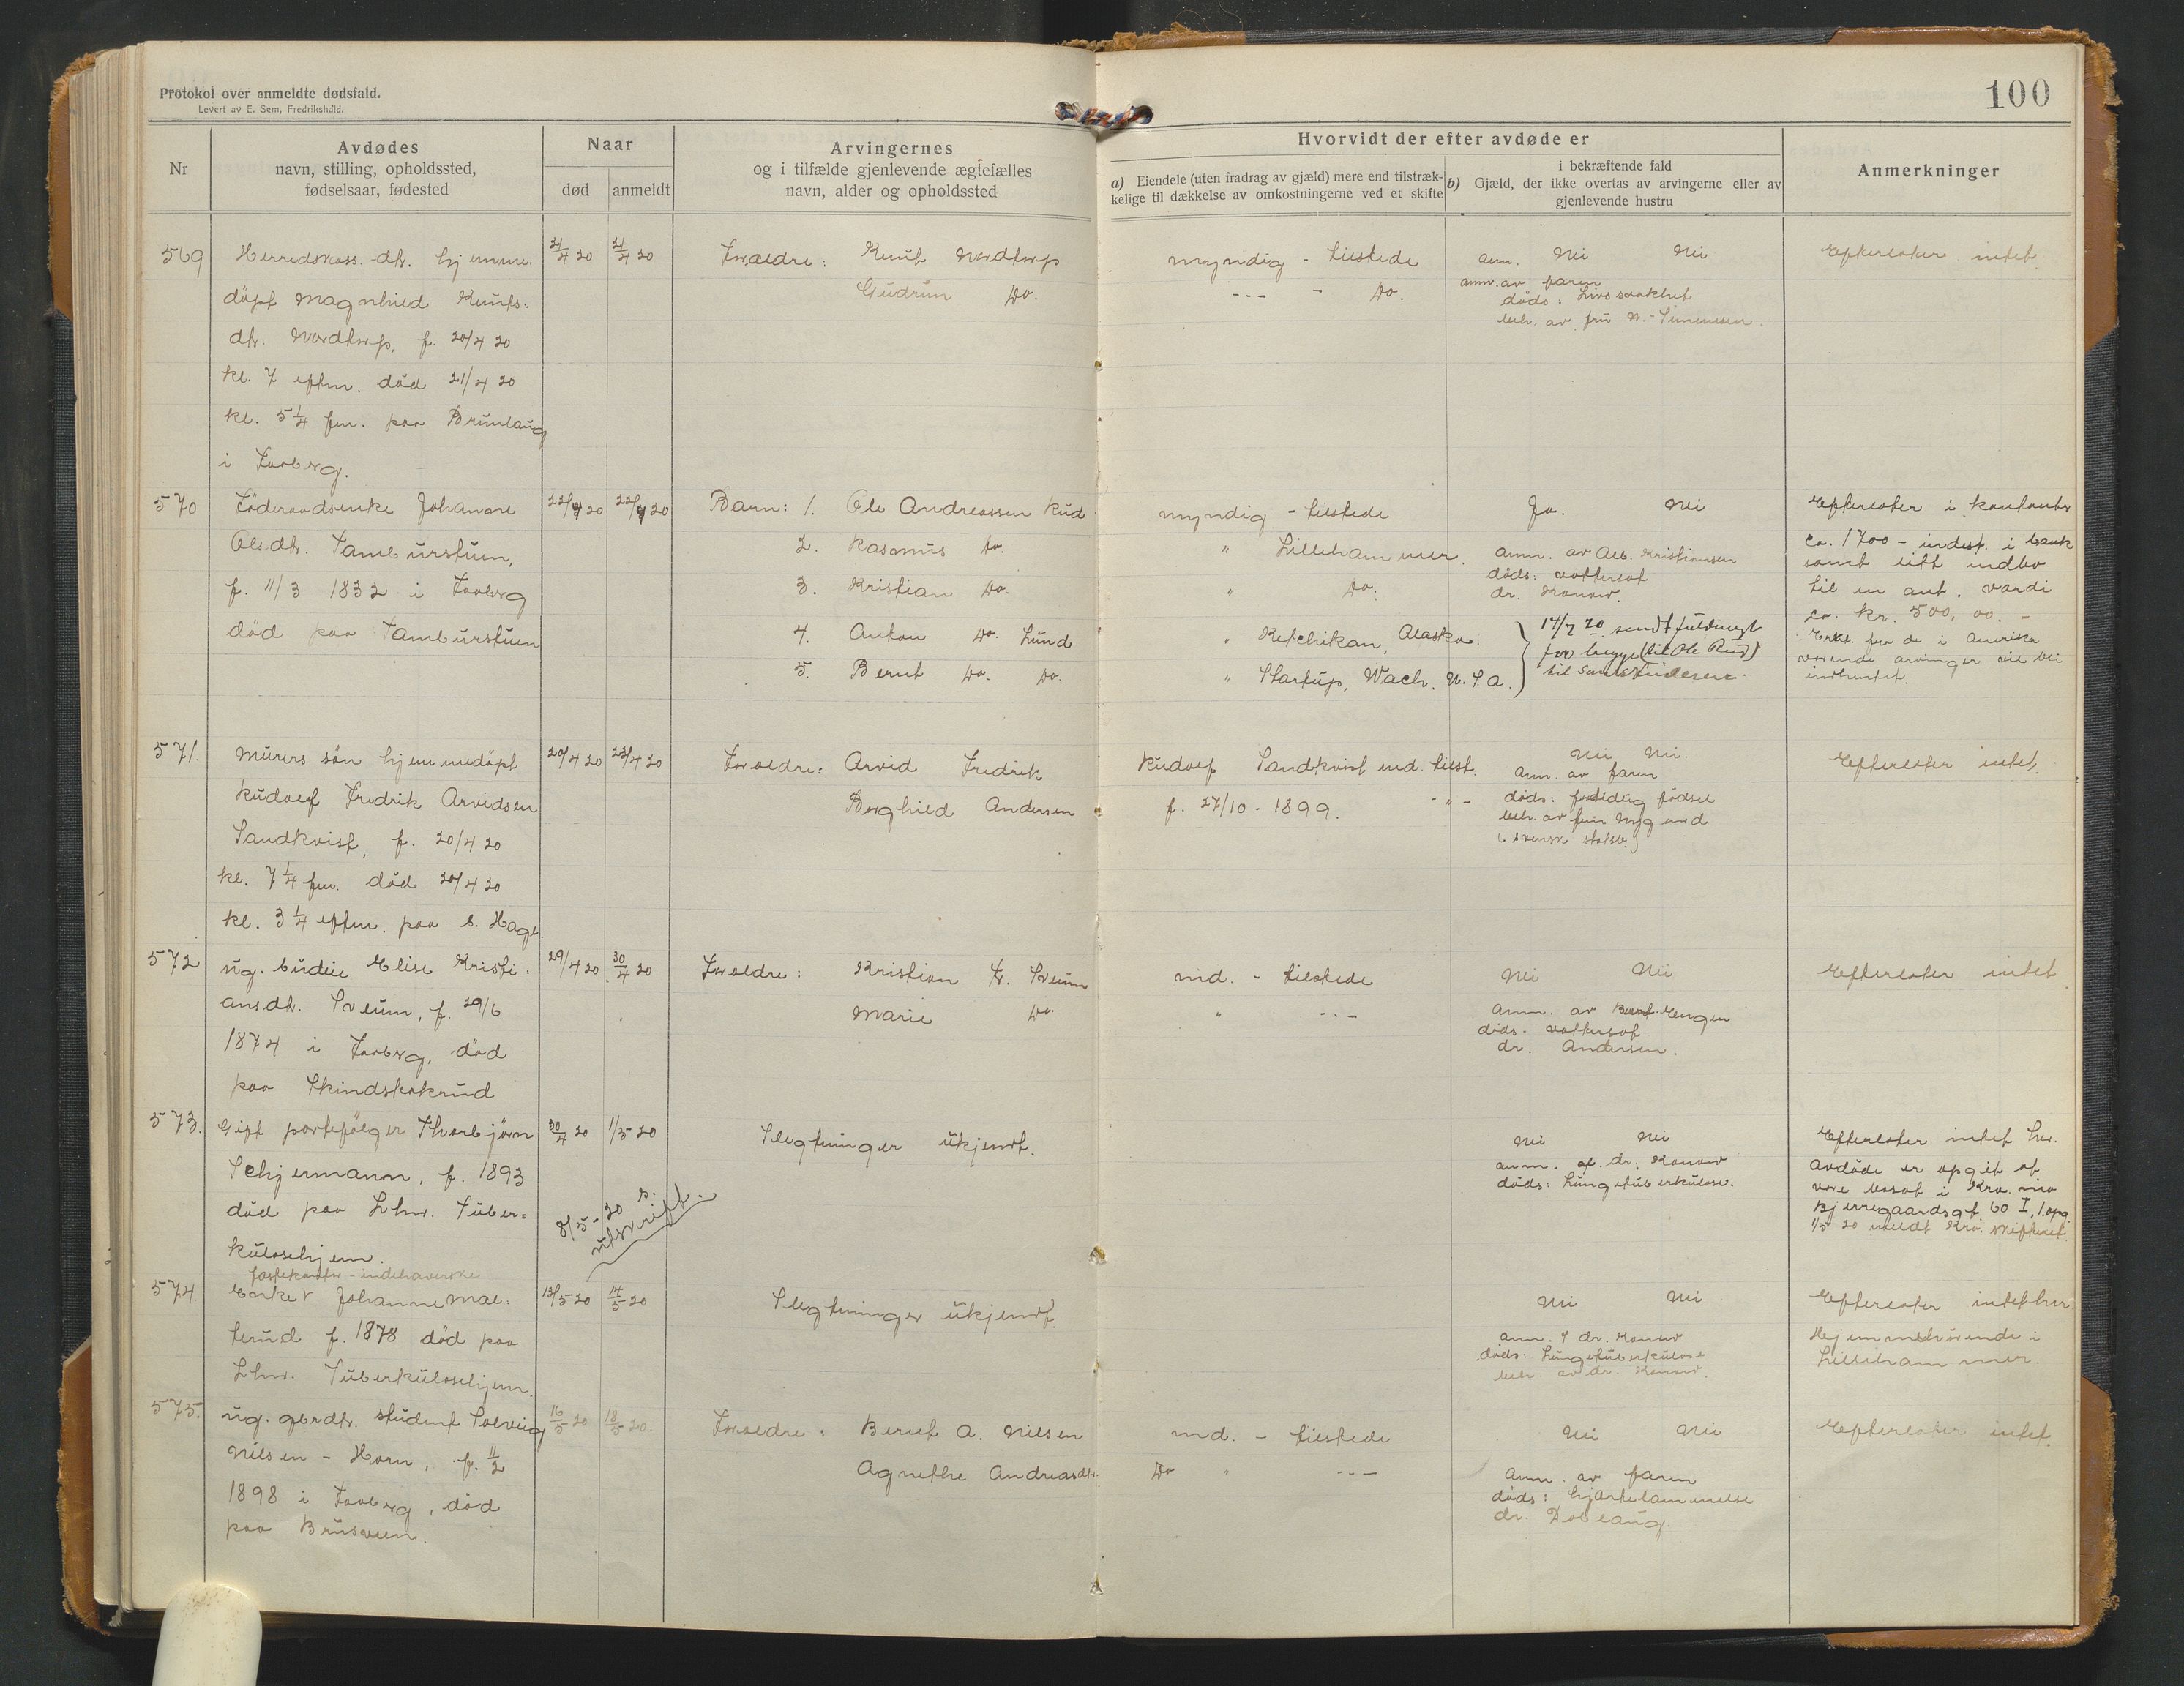 Protokol over anmeldte dødsfald.
Levert av E. Sem, Fredrikshald.
100
Nr
Avdødes
navn, stilling, opholdssted,
fødselsaar, fødested
Naar
død
anmeldt
Arvingernes
og i tilfælde gjenlevende ægtefælles
navn, alder og opholdssted
Hvorvidt der efter avdøde er
a) Eiendele (uten fradrag av gjæld) mere end tilstræk-
kelige til dækkelse av omkostningerne ved et skifte
i bekræftende fald
b) Gjæld, der ikke overtas av arvingerne eller av
gjenlevende hustru
Anmerkninger
569
Herredskass. dtr. hjemme-
döpt Magnhild Knuts-
dtr. Nordtorp, f. 20/4 20
kl. 7 eftm. död 21/4 20
kl. 5 1/4 fm. paa Brunlaug
i Faaberg.
21/4 20
21/4 20
Forældre: Knut Nordtorp
Gudrun Do.
myndig - tilstede
- - - - Do.
anm. Nei Nei
anm. av faren
döds: Livssvakhet
beh. av fru N.-Simensen.
Efterlater intet.
570
Föderaadsenke Johanne
Olsdtr. Tamburstuen,
f. 11/3 1832 i Faaberg
död paa Tamburstuen
22/4 20
22/4 20
Barn: 1. Ole Andreassen Rud
2. Rasmus Do.
3. Kristian Do.
4. Anton Do. Lund
5. Bernt Do. Do.
myndig - tilstede
" Lillehammer.
" Do.
" Ketchikan, Alaska.
" Startup, Wach. U.S.A.
Ja. Nei
anm. av Alb. Kristiansen
döds: vattersot
dr. Konow.
17/7 20 sendt fuldmagt
for begge (til Ole Rud)
til
Efterlater i kontanter
ca. 1700 - indest. i bank
samt litt indbo
til en ant. værdi
ca. kr. 500,00. -
Erkl. fra de i Amerika
værende arvinger vil bli
indhentet.
571.
Murers sön hjemmedöpt
Rudolf Fredrik Arvidsen
Sandkvist, f. 20/4 20
kl. 7 1/4 fm. död 20/4 20
kl. 3 1/4 eftm. paa s. Hage.
20/4 20
23/4 20
Forældre: Arvid Fredrik
Borghild Andersen
Rudolf Sandkvist md. tilst.
f. 27/10 - 1899. - " -
Nei Nei.
anm. av faren
döds: fortidlig födsel
beh. av fru Nygaard
(svensk statsb.)
Efterlater intet.
572
ug. budeie Elise Kristi-
ansdtr. Sveum, f. 29/6
1874 i Faaberg, död
paa Skindstakrud
29/4 20
30/4 20
Forældre: Kristian Fr. Sveum
Marie Do.
md. - tilstede
" - - -
Nei Nei
anm. av Bernt Engen
döds: vattersot
dr. Andersen.
Efterlater intet
573.
Gift portefölger Thorbjörn
Schjermann, f. 1893
död paa Lhmr. Tuber-
kulosehjem.
30/4 20
1/5 20
8/5 - 20 s.
utskrift.
Slegtninger ukjendt.
Nei Nei
anm. af dr. Konow
döds: Lungetuberkulose.
Efterlater intet her.
avdöde er opgit at
være bosat i Kra. nia
Bjerregaardsgt 60 I, 1. opg.
1/5 20 meldt Kra. skifteret.
574.
Enke Johanne Mæ-
lerud f. 1878 död paa
Lhmr. Tuberkulosehjem.
13/5 20
14/5 20
Slegtninger ukjendt.
Nei Nei
anm. af dr. Konow
döds: Lungetuberkulose
beh. av dr. Konow.
Efterlater intet her
Hjemmehörende i
Lillehammer.
575.
ug. gbrdtr. student Solveig
Nilsen - Horn, f. 11/2
1898 i Faaberg, död
paa Brusveen.
16/5 20
18/5 20.
Forældre: Bernt A. Nilsen
Agnethe Andreasdtr.
md. - tilstede
Do " - - -
Nei Nei
anm. av faren
döds: hjertelammelse
dr. Doblaug.
Efterlater intet.